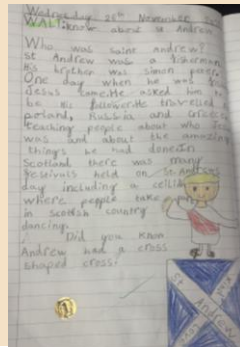 Wednesday 28th November
WALT: know about st Andrew
Who was saint andrew?
St Andrew was a fisherman
His brother was simon peter.
One day when he was
Jesus came he asked him to
be his follower. He travelled
poland, Russia and Greece
teaching people about who Jesus
was and about the amazing
things he had done. In
Scotland there was many
festivals held on St Andrews
day including a ceilidh
where people take part
in scottish country
dancing.
Did you know
Andrew had a cross
shaped cross?
st Andrew